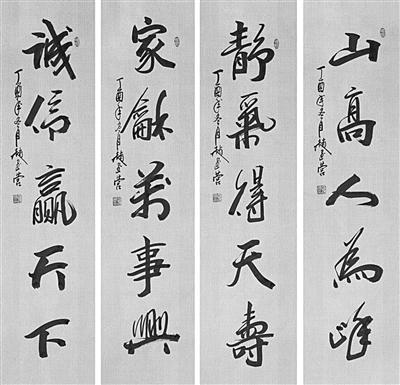 山高人為峰
丁酉年冬月
静氣得天壽
丁酉年冬月
家龢萬事興
丁酉年冬月
誠信贏天下
丁酉年冬月